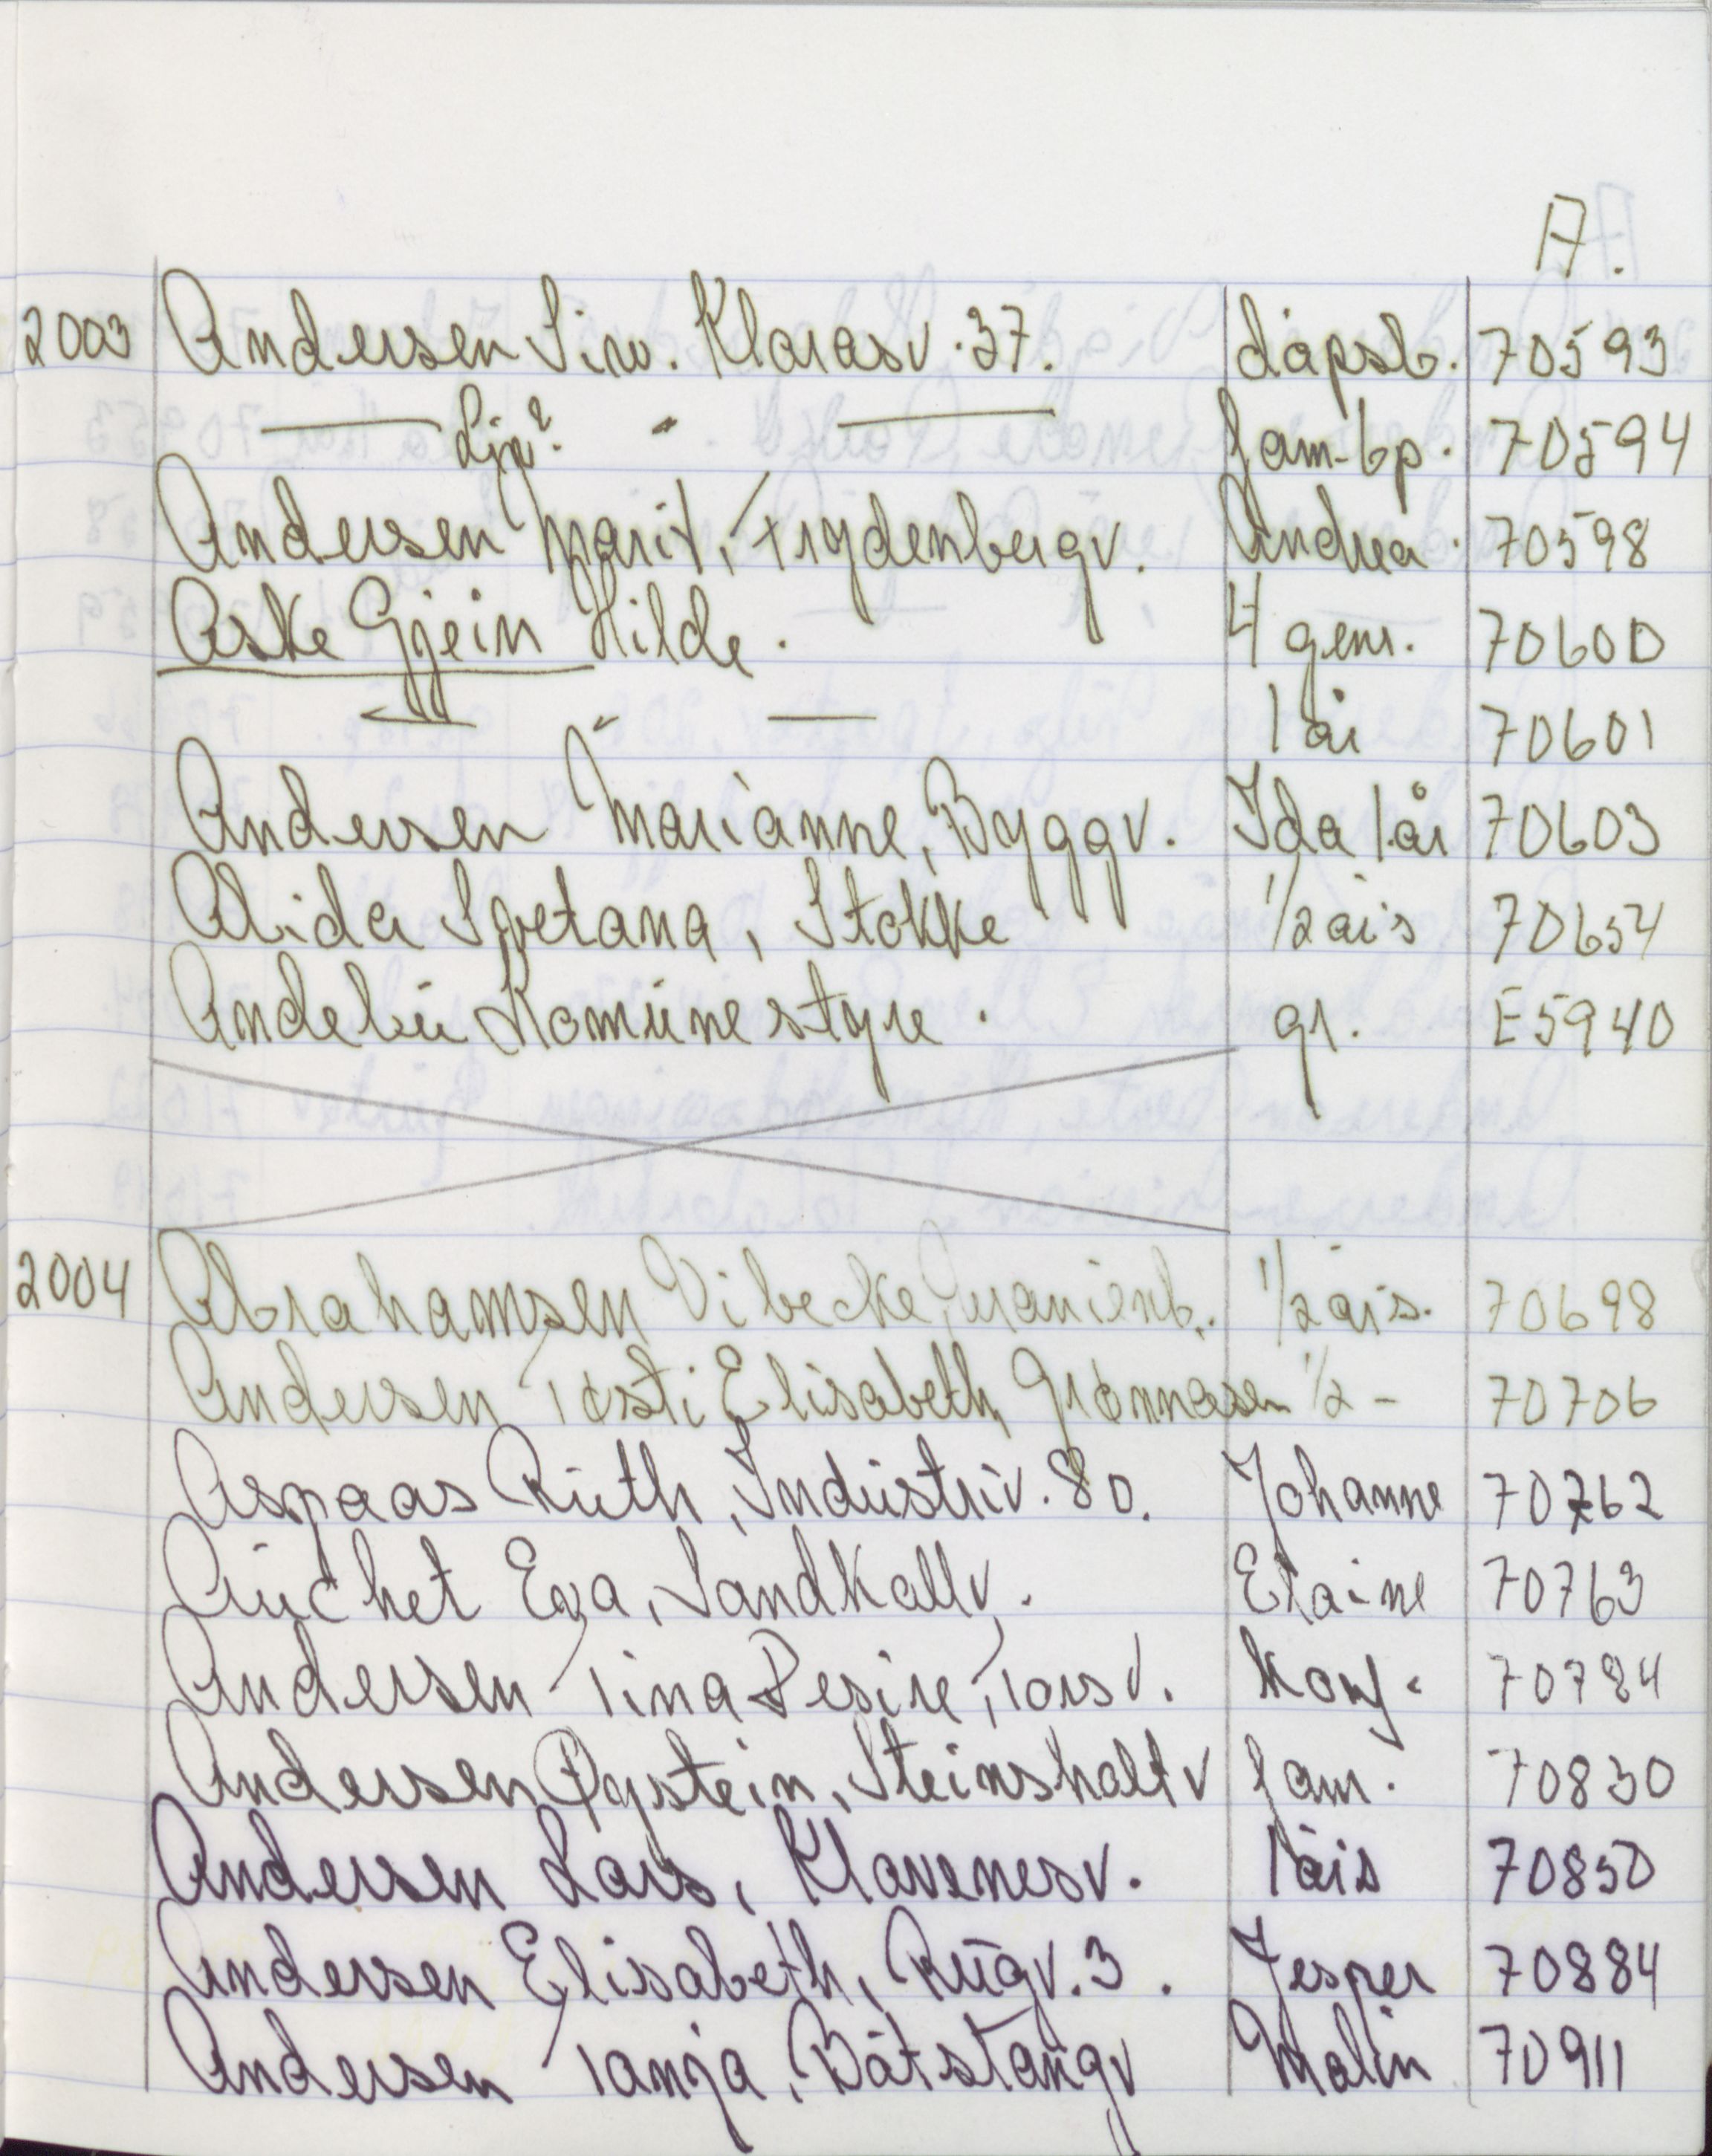 A.
2003 Andersen Siw. Klarasv. 37. dåpsb. 70593
" fam-bp. 70594
Andersen Marit, Frydenbergv. Andrea 70598
Aske Gjein Hilde. 4 gener. 70600
" 1 år 70601
Andersen Marianne, Byggv. Ida 1 år 70603
Alida Svetana, Stokke 1/2 års 70654
Andebu Komunestyre. gr. E5940
2004 Abrahamsen Vibecke, Granienb. 1/2 års. 70698
Andersen Tosti Elisabeth, Grønnåsen 1/2 - 70706
Aspaas Ruth, Industriv. 80. Johanne 70762
Auchet Eva, Sandkollv. Elaine 70763
Andersen Tina Desire, Torsv. konf. 70784
Andersen Øystein, Steinsholtv fam. 70830
Andersen Lars, Klavenesv. 1 års 70850
Andersen Elisabeth, Rugv. 3. Jesper 70884
Andersen Tanja, Båtstangv Malin 70911